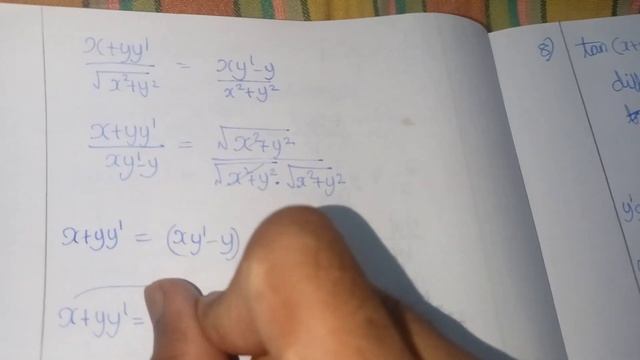 (x+yy')/√(x²+y²) = (xy'-y)/(x²+y²)
(x+yy')/(xy'-y) = √(x²+y²)/(√(x²+y²)·√(x²+y²))
x+yy' = (xy'-y)
x+yy' =
8)
tan(x+
y'